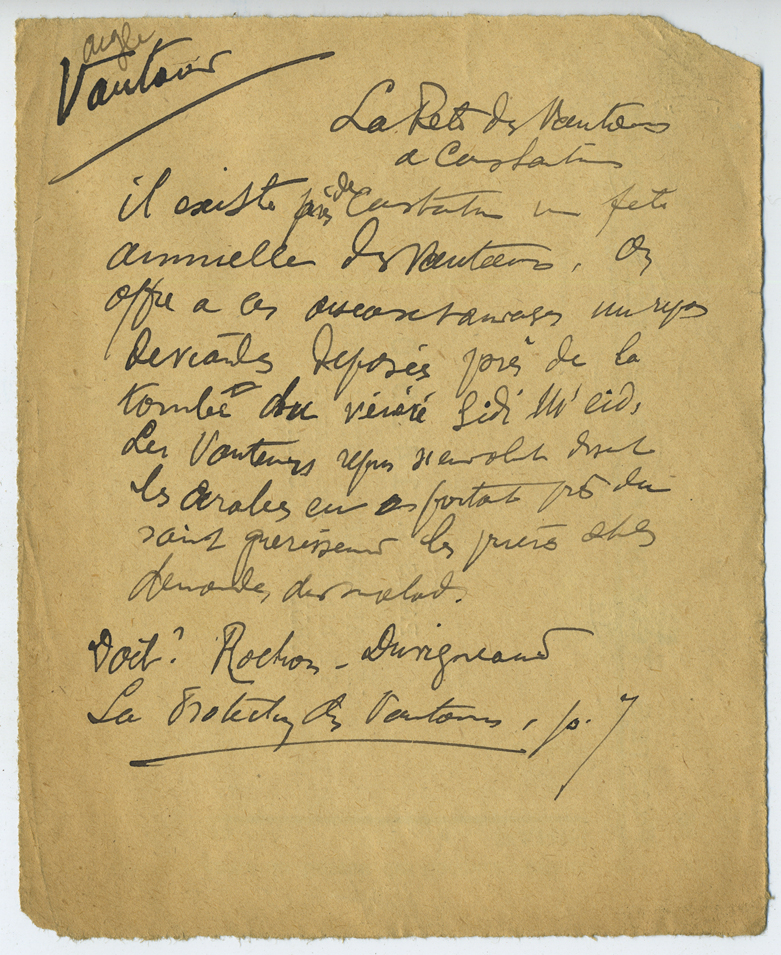 aigle
Vautour
La Fête des Vautours
a Constantine
il existe près de Constantine une fête
annuelle des Vautours, on
offre a ces oiseaux sauvages un repas
de viandes déposées près de la
tombe du vénéré Sidi M'cid,
Les Vautours repus s'envolent disent
les arabes en portant près du
saint guérisseur les prières et les
demandes des malades.
Doct? Rochon-Duvigneaud
La Protection des Vautours, p. 7